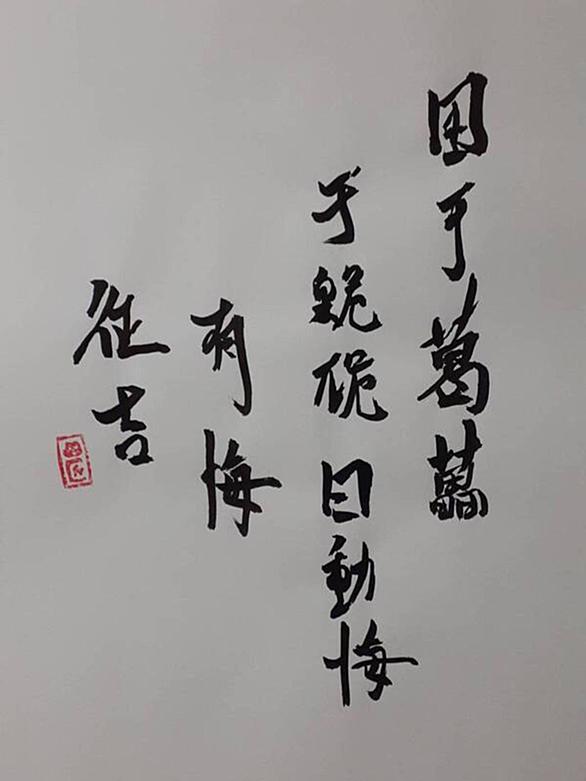 困于葛藟
于臲卼曰動悔
有悔
征吉